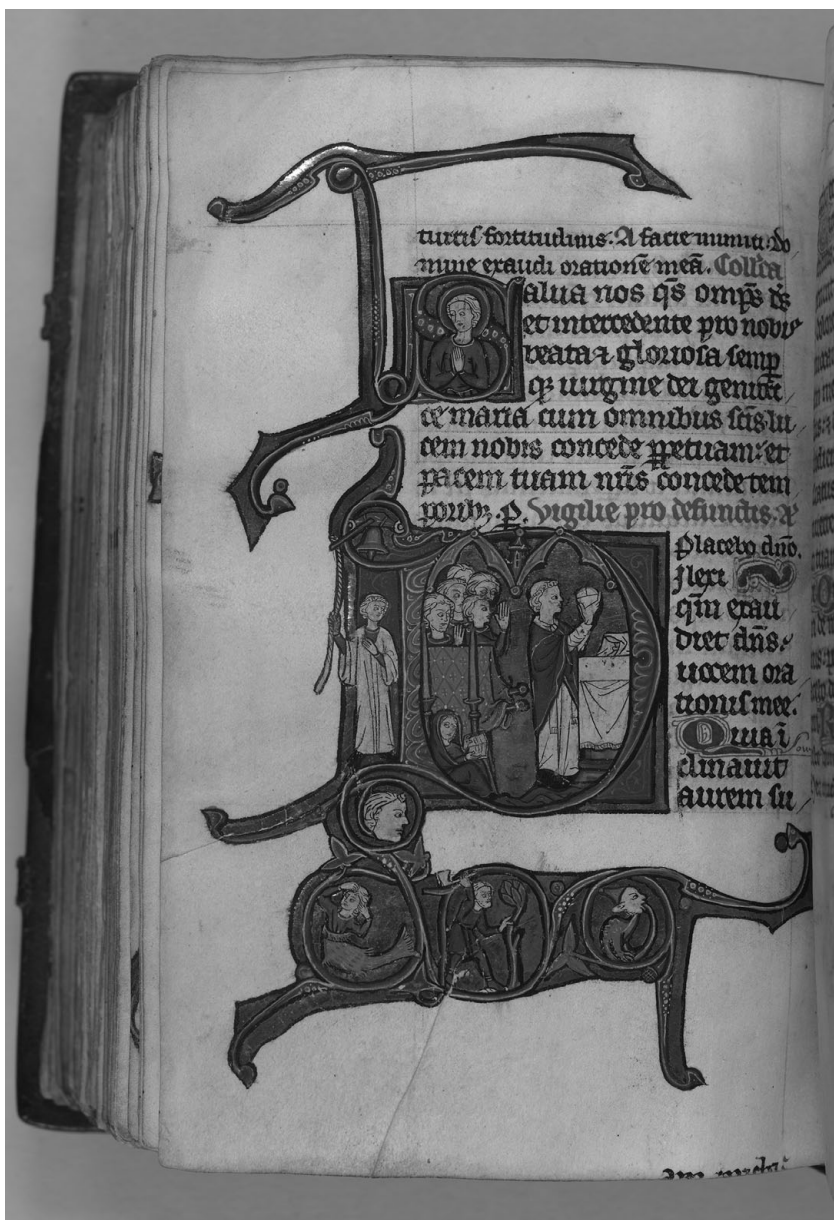 turris fortitudinis. A facie inimici. do
mine exaudi orationē meā. Collcā
alua nos q̄s omp̄s d̄s
et intercedente pro nobis
beata ⁊ gloriosa semp
q̢ uirgine dei genitri
ce maria cum omnibus sc̄is lu
cem nobis concede ꝑpetuam: et
pacem tuam nr̄is concede tem
poribꝫ. P. Vigilie pro defunctis. A
Placebo dn̄o.
Ilexi
qm̄ exau
diet dn̄s.
uocem ora
tionis mee.
Quia ī
clinauit
aurem su